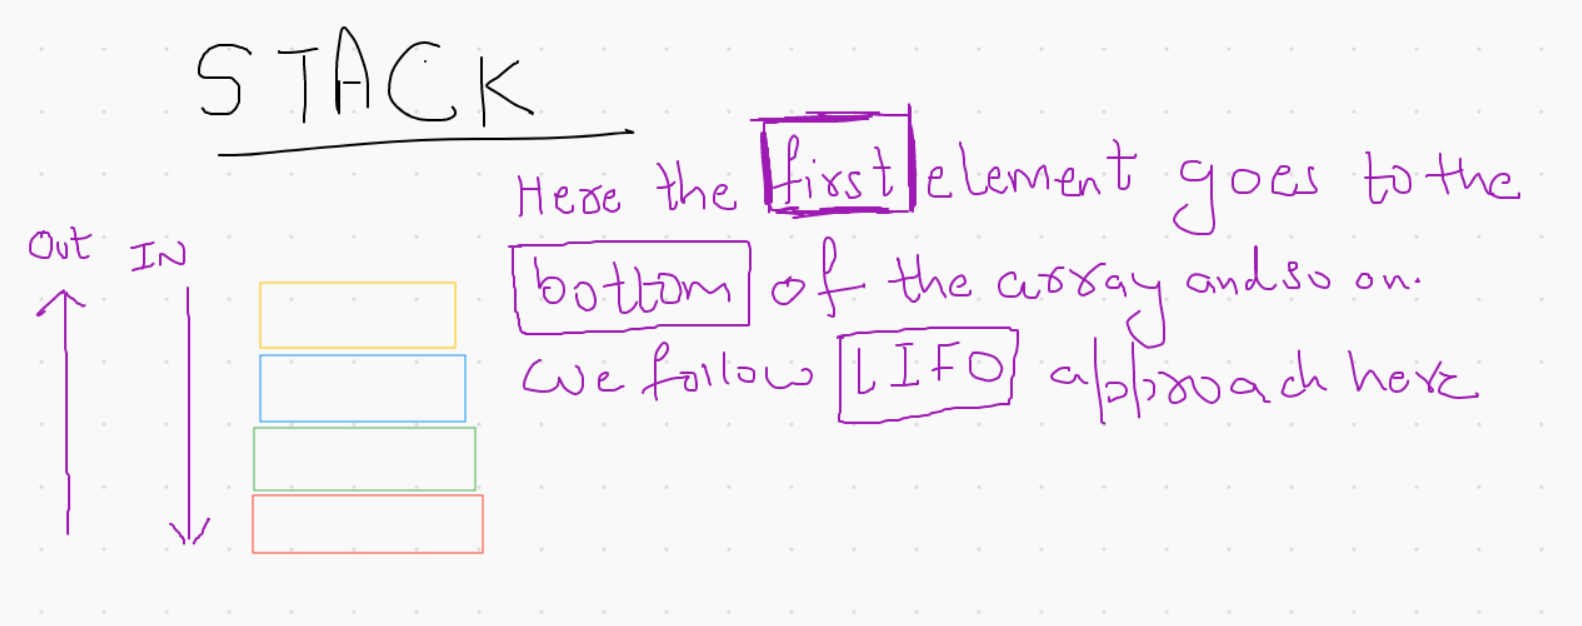 STACK
Here the first element goes to the
Out IN
bottom of the array and so on.
we follow LIFO approach here